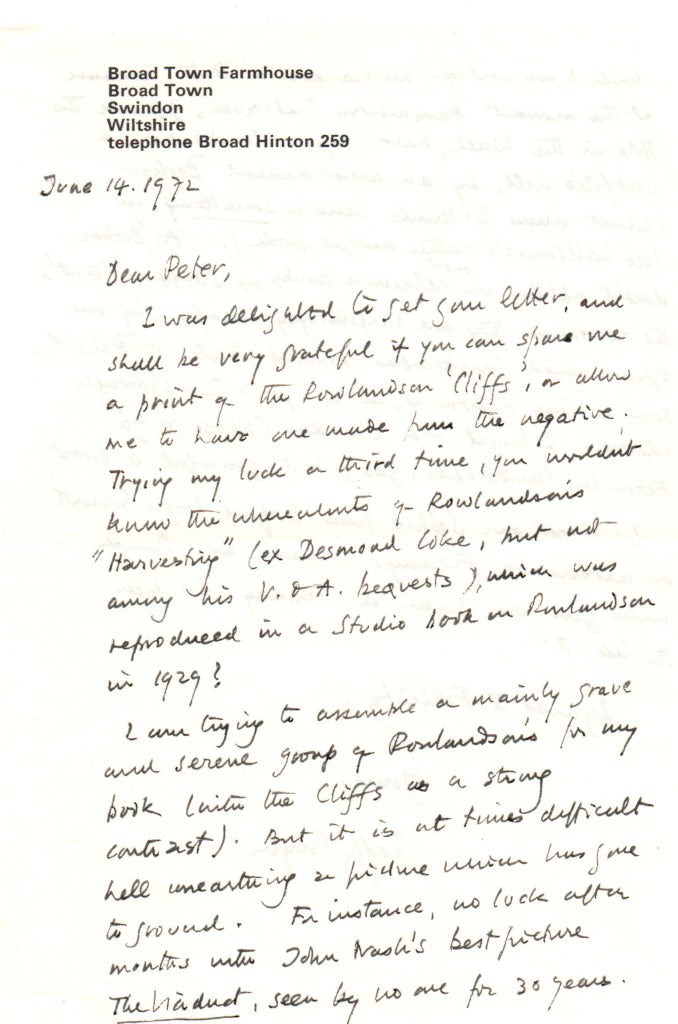 Broad Town Farmhouse
Broad Town
Swindon
Wiltshire
telephone Broad Hinton 259
June 14. 1972
Dear Peter,
I was delighted to get your letter, and
shall be very grateful if you can spare me
a print of the Rowlandson 'Cliffs', or allow
me to have one made from the negative.
Trying my luck a third time, you wouldn't
know the whereabouts of Rowlandson's
"Harvesting" (ex Desmond Coke, but not
among his V. & A. bequests), which was
reproduced in a Studio Book on Rowlandson
in 1929?
I am trying to assemble a mainly grave
and serene group of Rowlandson's for my
book (with the Cliffs as a strong
contrast). But it is at times difficult
hell unearthing a picture which has gone
to ground. For instance, no luck after
months with John Nash's best picture
The Viaduct, seen by no one for 30 years.